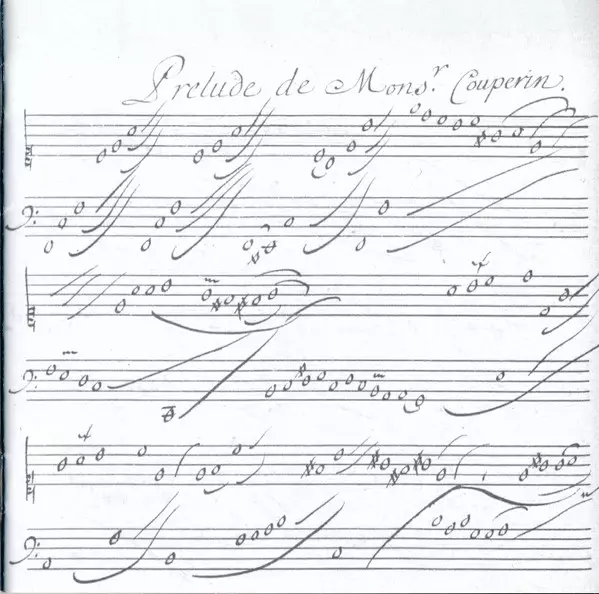 Prelude de Monsr. Couperin.